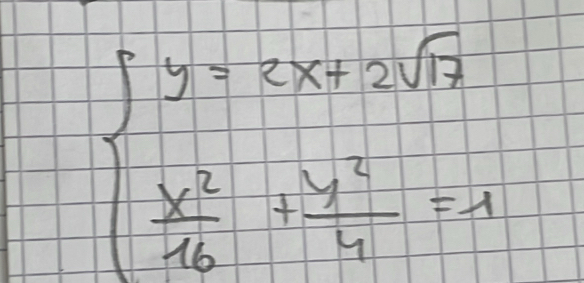 y = 2x + 2√17
x²/16 + y²/4 = 1